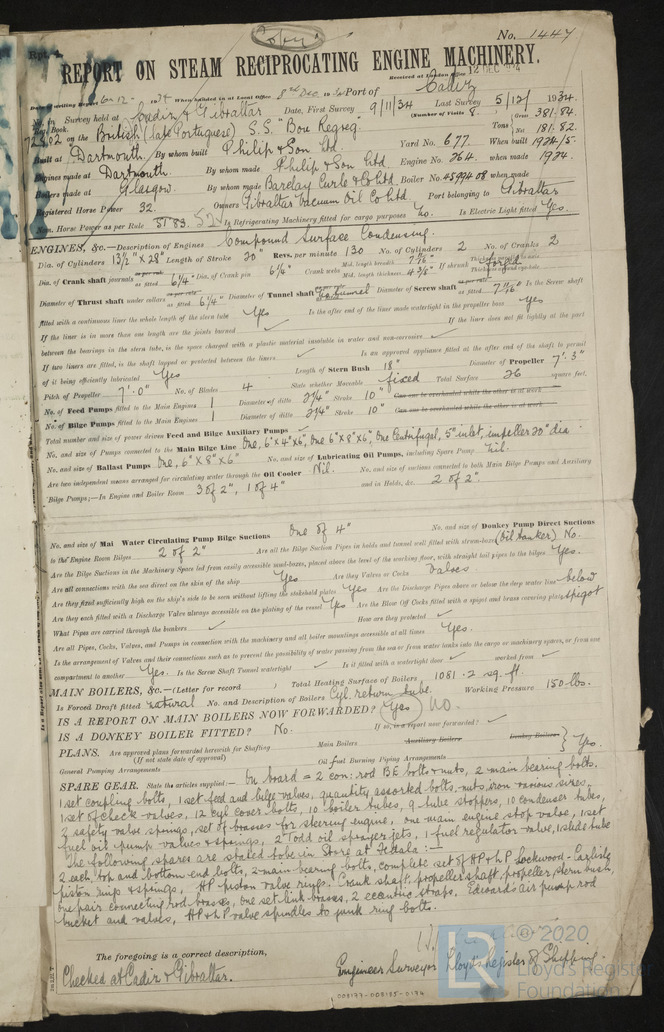 "Copy"
No. 1447
Rpt. 4.
REPORT ON STEAM RECIPROCATING ENGINE MACHINERY.
Received at London Office 12 DEC
Date of writing Report 6-12-1934 When handed in at Local Office 8th Dec 1934 Port of Cadiz
No. in Survey held at Cadiz & Gibraltar Date, First Survey 9/11/34 Last Survey 5/12/1934.
Reg. Book. (Number of Visits 8.)
on the British (late Portuguese) S.S. "Bou Regreg" Tons Gross 381.84 Net 181.82.
Built at Dartmouth By whom built Philip & Son Ltd. Yard No. 677. When built 1924/5.
Engines made at Dartmouth. By whom made Philip & Son Ltd. Engine No. 264. when made 1924.
Boilers made at Glasgow. By whom made Barclay Curle & Co Ltd. Boiler No. when made
Registered Horse Power 32. Owners Gibraltar Vacuum Oil Co Ltd. Port belonging to Gibraltar
Nom. Horse Power as per Rule Is Refrigerating Machinery fitted for cargo purposes No. Is Electric Light fitted Yes.
ENGINES, &c.—Description of Engines Compound Surface Condensing.
Dia. of Cylinders 13½" x 28" Length of Stroke 20" Revs. per minute 130 No. of Cylinders 2 No. of Cranks 2
Dia. of Crank shaft journals as per rule as fitted 6¼" Dia. of Crank pin 6¼" Crank webs Mid. length breadth Mid. length thickness If shrunk
Diameter of Thrust shaft under collars as per rule as fitted 6¼" Diameter of Tunnel shaft as per rule No tunnel Diameter of Screw shaft as per rule as fitted Is the Screw shaft
fitted with a continuous liner the whole length of the stern tube Yes Is the after end of the liner made watertight in the propeller boss Yes
If the liner is in more than one length are the joints burned ✓ If the liner does not fit tightly at the part
between the bearings in the stern tube, is the space charged with a plastic material insoluble in water and non-corrosive ✓
If two liners are fitted, is the shaft lapped or protected between the liners ✓ Is an approved appliance fitted at the after end of the shaft to permit
of it being efficiently lubricated Yes Length of Stern Bush 18" Diameter of Propeller 7'.3"
Pitch of Propeller 7'.0" No. of Blades 4 State whether Moveable fixed Total Surface 26 square feet.
No. of Feed Pumps fitted to the Main Engines 1 Diameter of ditto 2¼" Stroke 10" Can one be overhauled while the other is at work
No. of Bilge Pumps fitted to the Main Engines 1 Diameter of ditto 2¼" Stroke 10" Can one be overhauled while the other is at work
Total number and size of power driven Feed and Bilge Auxiliary Pumps ✓
No. and size of Pumps connected to the Main Bilge Line One, 6"x4"x6", One 6"x8"x6", One Centrifugal, 5" inlet, impeller 20" dia.
No. and size of Ballast Pumps One, 6"x8"x6" No. and size of Lubricating Oil Pumps, including Spare Pump Nil.
Are two independent means arranged for circulating water through the Oil Cooler Nil. No. and size of suctions connected to both Main Bilge Pumps and Auxiliary
Bilge Pumps;—In Engine and Boiler Room 3 of 2", 1 of 4" and in Holds, &c. 2 of 2"
No. and size of Main Water Circulating Pump Bilge Suctions One of 4" No. and size of Donkey Pump Direct Suctions
to the Engine Room Bilges 2 of 2" Are all the Bilge Suction Pipes in holds and tunnel well fitted with strum-boxes (Oil tanker) No.
Are the Bilge Suctions in the Machinery Space led from easily accessible mud-boxes, placed above the level of the working floor, with straight tail pipes to the bilges Yes.
Are all connections with the sea direct on the skin of the ship Yes Are they Valves or Cocks Valves
Are they fixed sufficiently high on the ship's side to be seen without lifting the stokehold plates Yes Are the Discharge Pipes above or below the deep water line below
Are they each fitted with a Discharge Valve always accessible on the plating of the vessel Yes Are the Blow Off Cocks fitted with a spigot and brass covering plate Spigot
What Pipes are carried through the bunkers ✓ How are they protected ✓
Are all Pipes, Cocks, Valves, and Pumps in connection with the machinery and all boiler mountings accessible at all times Yes.
Is the arrangement of Valves and their connections such as to prevent the possibility of water passing from the sea or from water tanks into the cargo or machinery spaces, or from one
compartment to another Yes. Is the Screw Shaft Tunnel watertight ✓ Is it fitted with a watertight door ✓ worked from ✓
MAIN BOILERS, &c.—(Letter for record ) Total Heating Surface of Boilers 1081.2 sq. ft.
Is Forced Draft fitted natural No. and Description of Boilers Cyl. return tube. Working Pressure 150 lbs.
IS A REPORT ON MAIN BOILERS NOW FORWARDED? (Yes) No.
IS A DONKEY BOILER FITTED? No. If so, is a report now forwarded? ✓
PLANS. Are approved plans forwarded herewith for Shafting Main Boilers Auxiliary Boilers Donkey Boilers } Yes.
(If not state date of approval)
General Pumping Arrangements Oil fuel Burning Piping Arrangements
SPARE GEAR. State the articles supplied:— On board = 2 con: rod BE bolts & nuts, 2 main bearing bolts.
1 set coupling bolts, 1 set feed and bilge valves, quantity assorted bolts, nuts, iron various sizes.
1 set of check valves, 12 cyl cover bolts, 10 boiler tubes, 9 tube stoppers, 10 condenser tubes,
2 safety valve springs, set of brasses for steering engine, one main engine stop valve, 1 set
fuel oil pump valves & springs, 2 Todd oil sprayer jets, 1 fuel regulator valve, 1 slide tube
The following spares are stated to be in Store at Fedala:—
2 each, top and bottom end bolts, 2 main bearing bolts, complete set of HP & LP Lockwood-Carlisle
piston rings & springs, HP piston valve rings. Crank shaft, propeller shaft, propeller, stern bush,
one pair connecting rod brasses, one set link brasses, 2 eccentric straps. Edwards air pump rod
bucket and valves, HP & LP valve spindles to junk ring bolts.
The foregoing is a correct description,
Checked at Cadiz & Gibraltar.
Engineer Surveyor Lloyd's Register of Shipping.
© 2020
Lloyd's Register
Foundation
008177-008185-0174